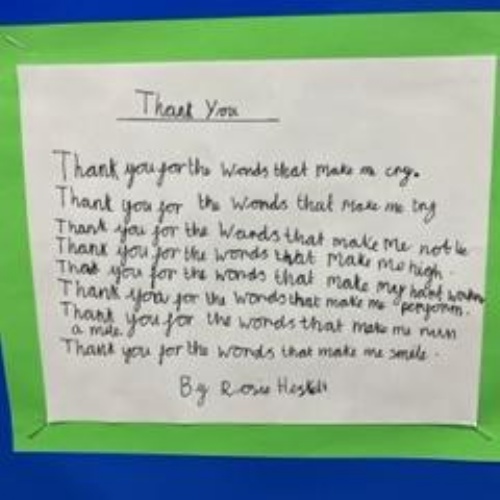 Thank You
Thank you for the words that make me cry.
Thank you for the words that make me try
Thank you for the words that make me not lie
Thank you for the words that make me high.
That you for the words that make my heart
Thank you for the words that make me perform.
Thank you for the words that make me run
a mile.
Thank you for the words that make me smile.
By Rosie